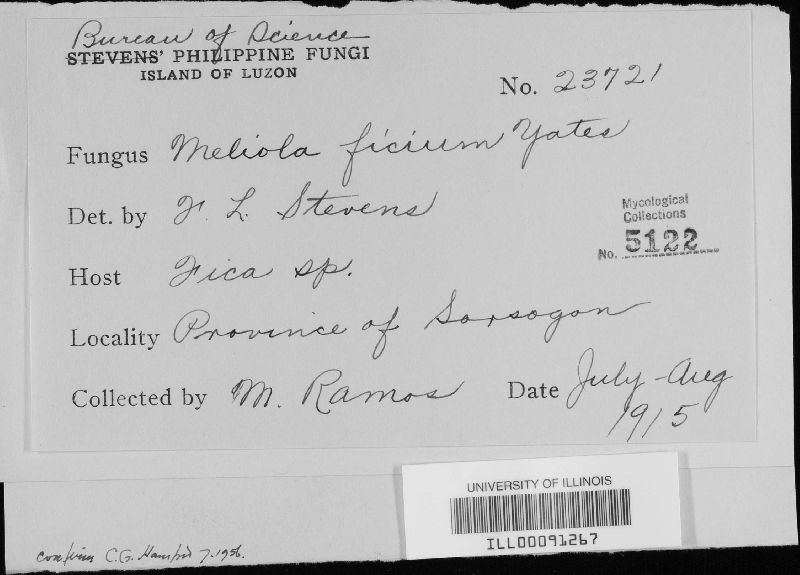 Bureau of Science
STEVENS' PHILIPPINE FUNGI
ISLAND OF LUZON
No. 23721
Fungus Meliola ficium Yates
Det. by F. L. Stevens
Mycological
Collections
No. 5122
Host Fica sp.
Locality Province of Sorsogon
Collected by M. Ramos Date July-Aug
1915
UNIVERSITY OF ILLINOIS
ILL00091267
confirm C.G. Hansford 7-1956.